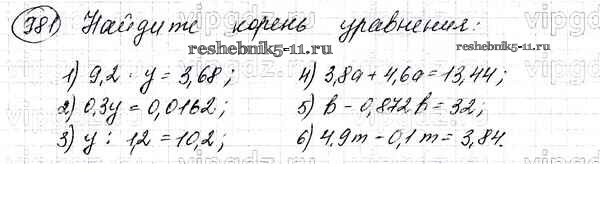 981 Найдите корень уравнения:
reshebnik5-11.ru
1) 9,2 · y = 3,68;
4) 3,8a + 4,6a = 13,44;
2) 0,3y = 0,0162;
5) b - 0,872b = 32;
3) y : 1,2 = 10,2;
6) 4,9m - 0,1m = 3,84.
reshebnik5-11.ru
vipgdz.ru